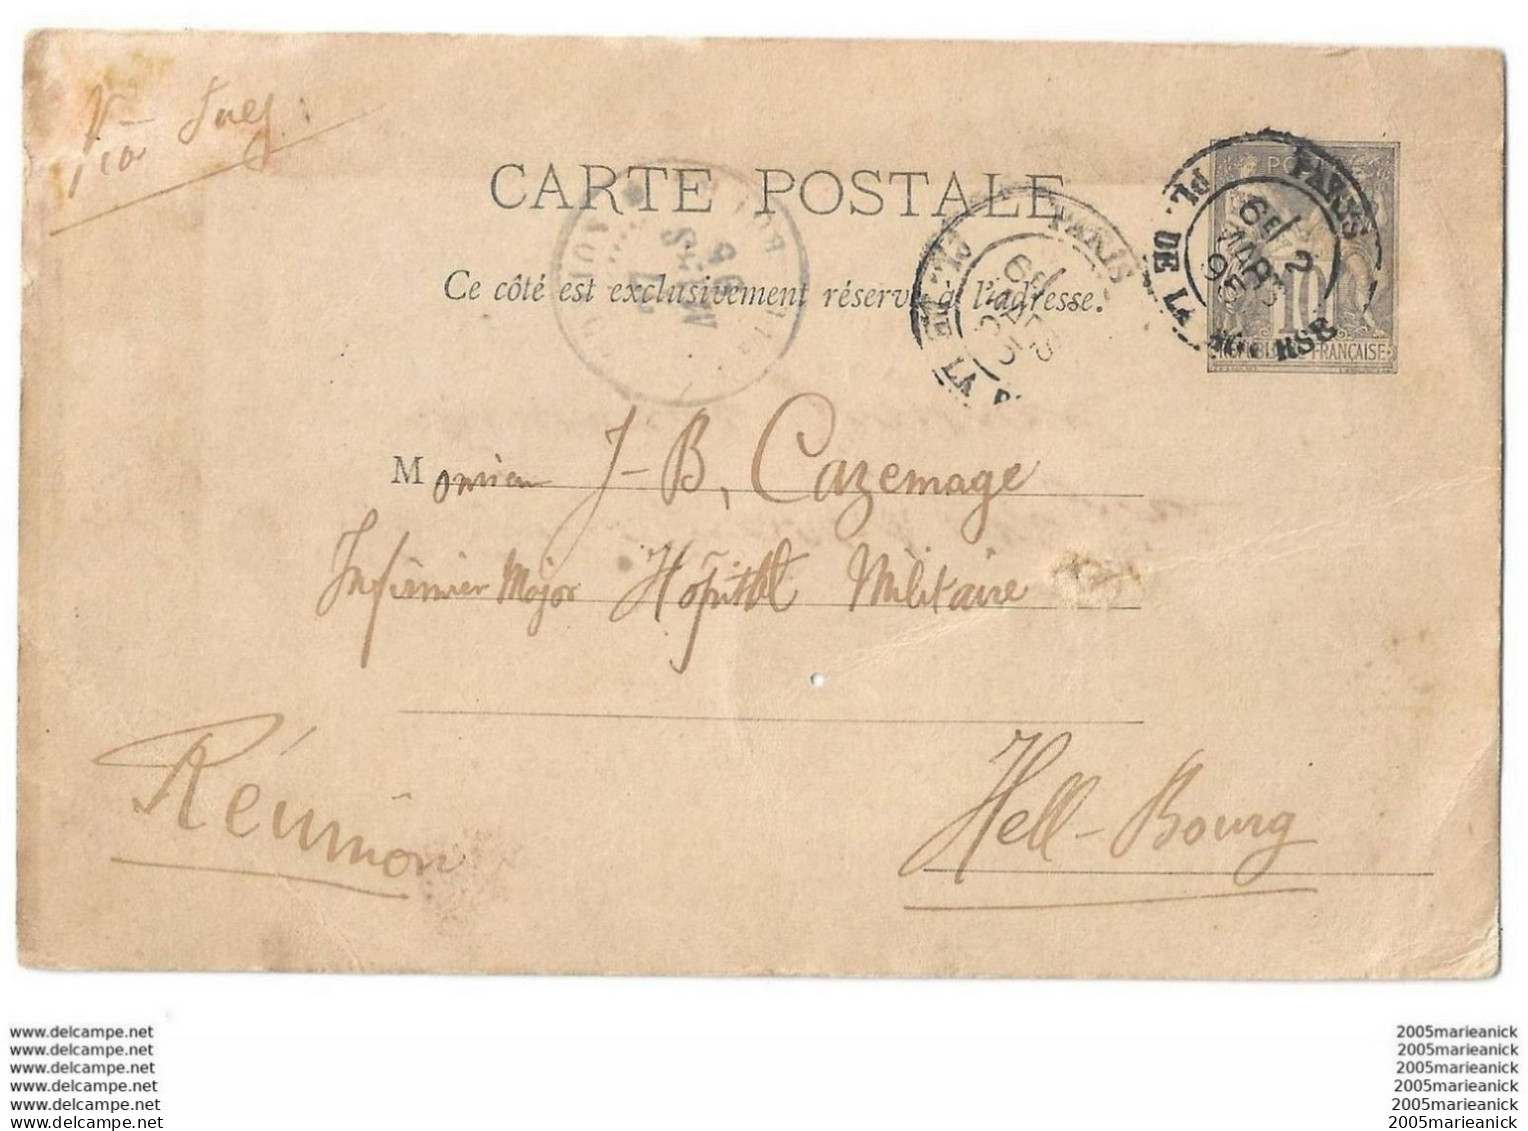 Suez
CARTE POSTALE
Ce côté est exclusivement réservé à l'adresse.
PARIS
PL. DE LA
PARIS
PL. DE LA BOURSE
6E / 2
MARS
POSTE
10
REPUBLIQUE FRANÇAISE
Monsieur J-B, Cazemage
Infirmier Major Hôpital Militaire
Réunion
Hell-Bourg
www.delcampe.net
www.delcampe.net
www.delcampe.net
www.delcampe.net
www.delcampe.net
www.delcampe.net
2005marieanick
2005marieanick
2005marieanick
2005marieanick
2005marieanick
2005marieanick